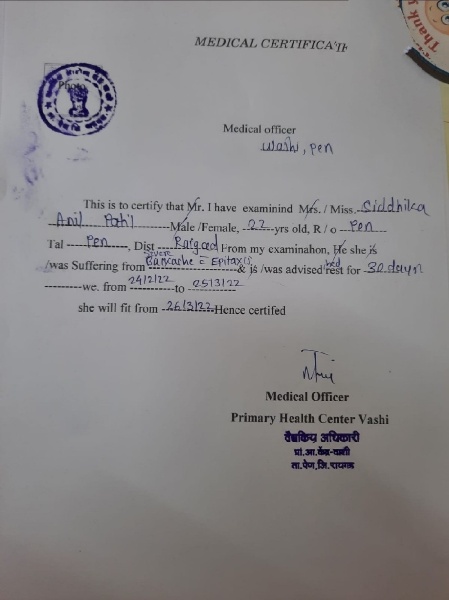 Thank
MEDICAL CERTIFICATE
Photo
Medical officer
Washi, Pen
This is to certify that Mr. I have examinind Mrs. / Miss. Siddhika
Anil Patil Male /Female, 22 yrs old, R / o Pen
Tal Pen, Dist Raigad From my examinahon, He she is
severe
/was Suffering from Backache = Epitaxis & is /was advised bed rest for 30 days
we. from 24/2/22 to 25/3/22
she will fit from 26/3/22 Hence certifed
Medical Officer
Primary Health Center Vashi
वैद्यकिय अधिकारी
प्रा.आ.केंद्र-वाशी
ता.पेण,जि.रायगड